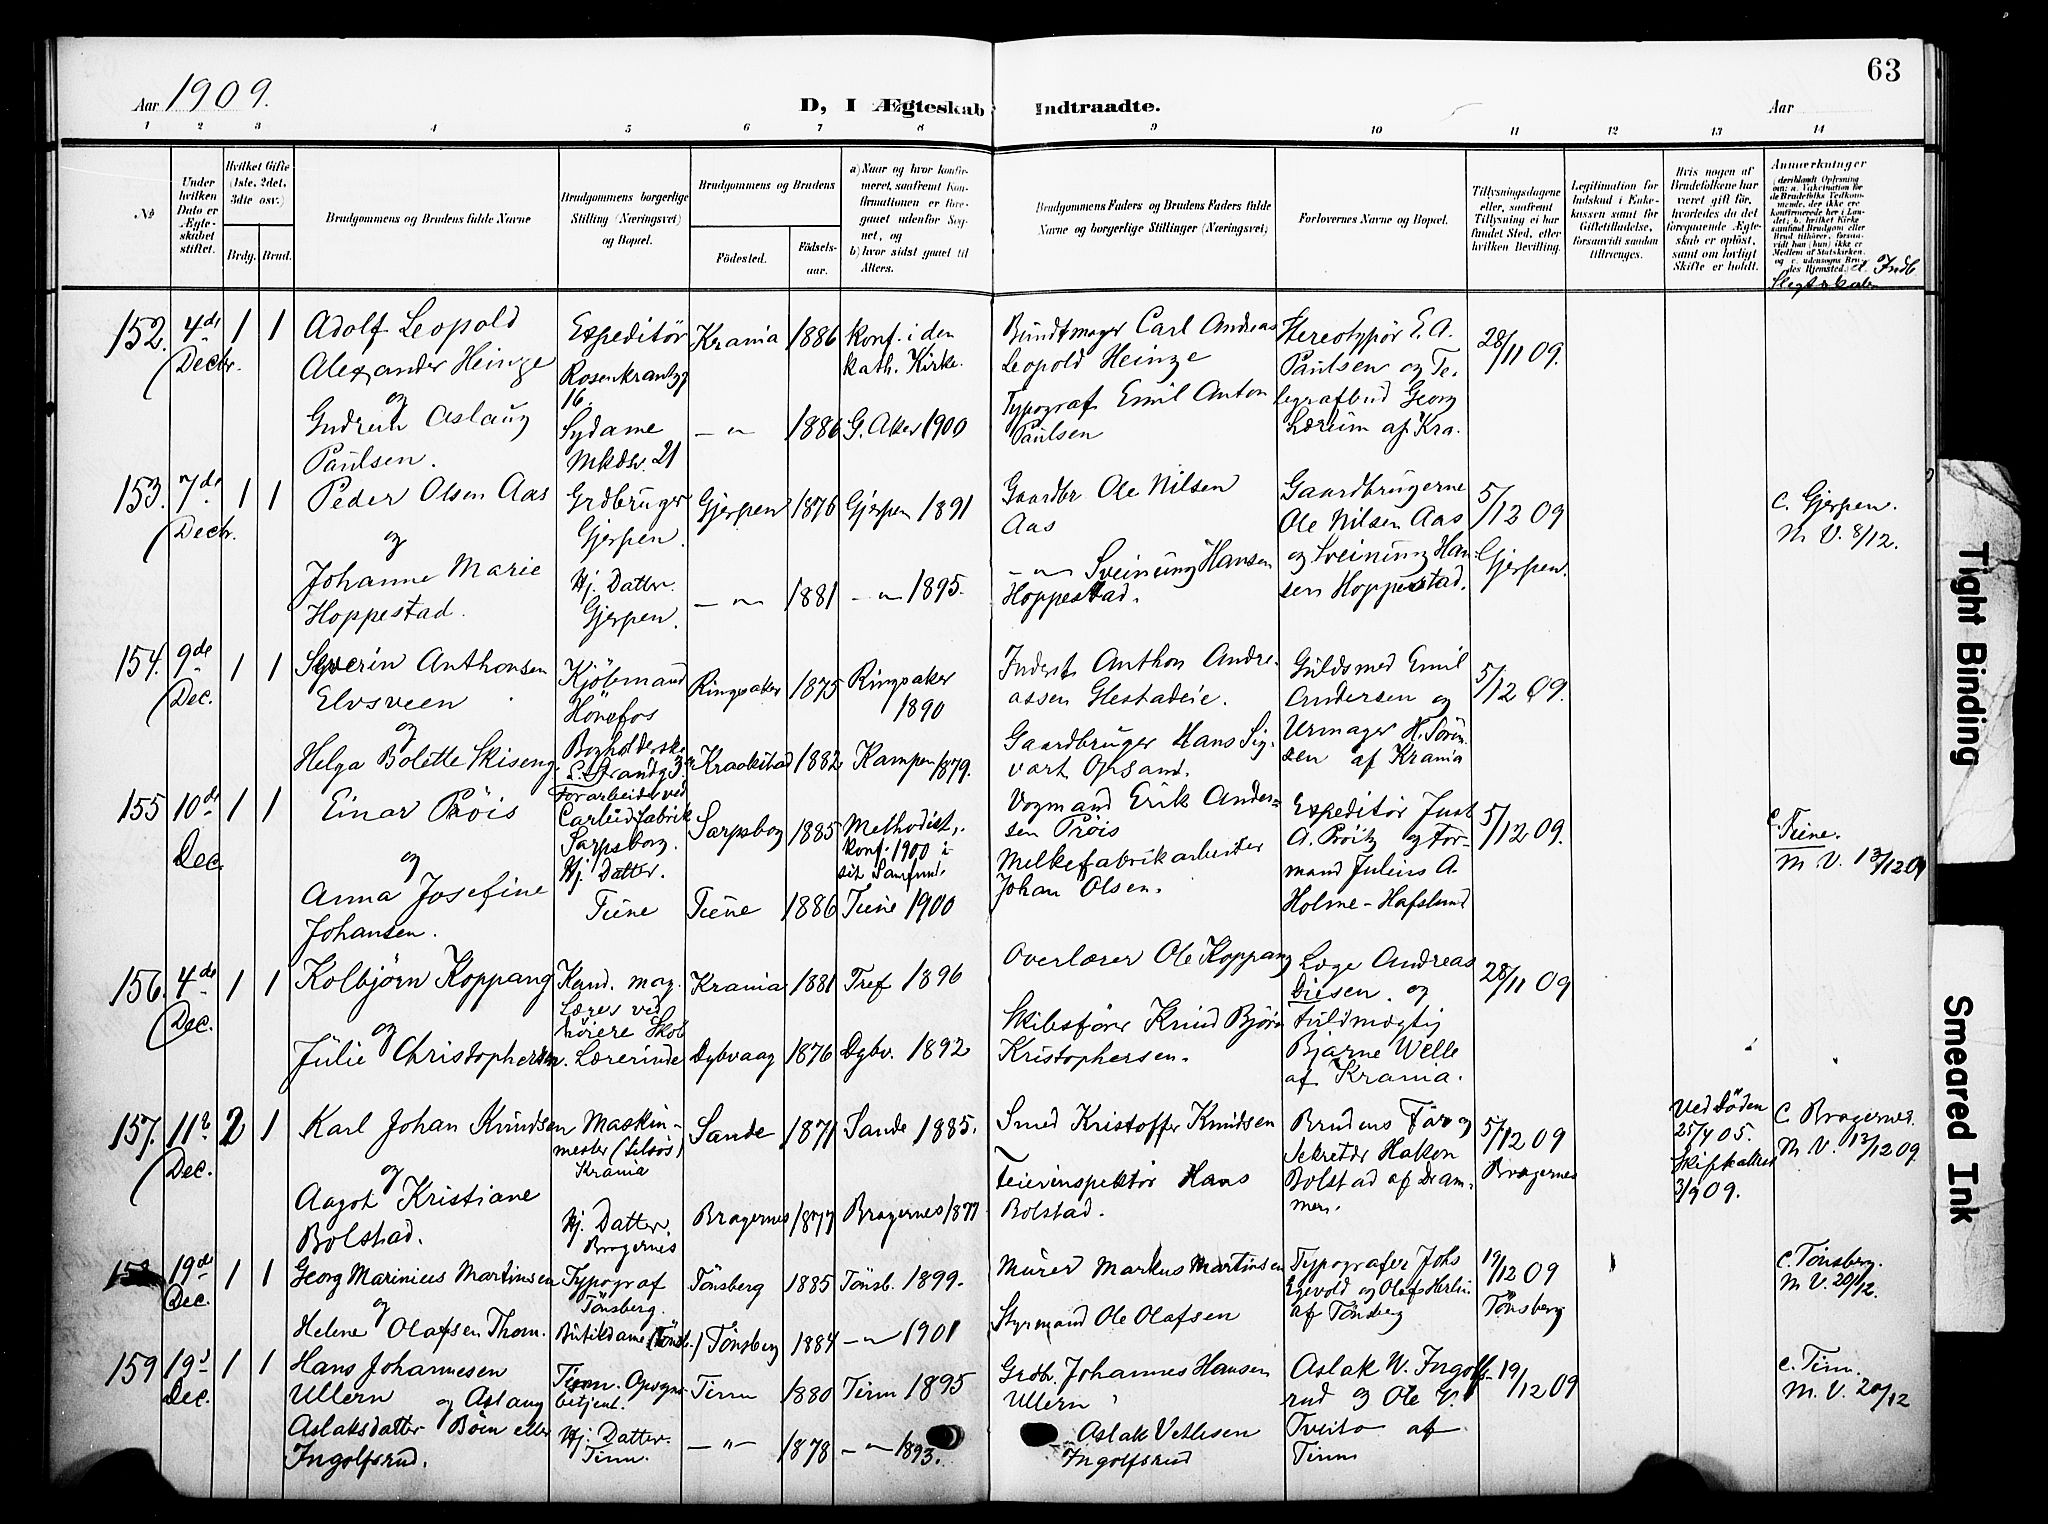 63
Aar 1909.
D, I Ægteskab Indtraadte.
Aar
1 2 3 4 5 6 7 8 9 10 11 12 13 14
No
Under hvilken Dato er Ægteskabet stiftet.
Hvilket Gifte (1ste, 2det, 3die osv.)
Brdg. Brud.
Brudgommens og Brudens fulde Navne
Brudgommens borgerlige Stilling (Næringsvei) og Bopæl.
Brudgommens og Brudens
Fødested.
Fødselsaar.
a) Naar og hvor konfirmeret, saafremt Konfirmationen er foregaaet udenfor Sognet, og
b) hvor sidst gaaet til Alters.
Brudgommens Faders og Brudens Faders fulde Navne og borgerlige Stillinger (Næringsvei)
Forlovernes Navne og Bopæl.
Tillysningsdagene eller, saafremt Tillysning ei har fundet Sted, efter hvilken Bevilling.
Legitimation for Indskud i Enkekassen samt for Giftetilladelse, forsaavidt saadan tiltrænges.
Hvis nogen af Brudefolkene har været gift før, hvorledes da det foregaaende Ægteskab er opløst, samt om lovligt Skifte er holdt.
Anmærkninger
152. 4de Decbr. 1 1
Adolf Leopold
Alexander Heinze
og
Gudrun Aslaug
Paulsen.
Expeditör
Rosenkrantzg
16.
Sydame
Mkdsv. 21
Krania 1886 konf. i den
kath. Kirke.
—"— 1886 G. Aker 1900
Bundtmager Carl Andreas
Leopold Heinze
Typograf Emil Anton
Paulsen
Stereotypör E. A.
Paulsen og Te-
legrafbud Georg
Lærum af Kra.
28/11 09.
153. 7de Decbr. 1 1
Peder Olsen Aas
og
Johanne Marie
Hoppestad.
Grdbruger
Gjerpen.
Hj. Datter.
Gjerpen.
Gjerpen 1876 Gjerpen 1891
—"— 1881 —"— 1895.
Gaardbr Ole Nilsen
Aas
—"— Sveinung Hansen
Hoppestad.
Gaardbrugerne
Ole Nilsen Aas
og Sveinung Han-
sen Hoppestad.
5/12 09
Gjerpen.
C. Gjerpen.
M. V. 8/12.
154. 9de Dec. 1 1
Severin Anthonsen
Elvsveen
og
Helga Bolette Skiseng.
Kjöbmand
Hönefos
Bogholderske
Ringsaker 1875 Ringsaker
1890
Kraakstad 1882 Kampen 1879.
Inderst Anthon Andre-
assen Glestadeie.
Gaardbruger Hans Sig-
vart Opsand.
Guldsmed Emil
Andersen og
Urmager H. Sörin-
sen af Krania
5/12 09.
155 10de Dec. 1 1
Einar Pröis
og
Anna Josefine
Johansen.
Forarbeider ved
Carbidfabrik
Sarpsborg.
Hj. Datter.
Tune
Sarpsborg 1885 Methodist,
konf. 1900 i
sit Samfund.
Tune 1886 Tune 1900
Vogmand Erik Ander-
sen Pröis
Melkefabrikarbeider
Johan Olsen.
Expeditör Just
A. Pröitz og For-
mand Julius A.
Holme-Hafslund
5/12 09.
C. Tune.
M. V. 13/12 09
156. 4de Dec. 1 1
Kolbjörn Koppang
og
Julie Christophersen.
Kand. mag.
Lærer ved
höiere Skol.
Lærerinde
Krania 1881 Tref 1896
Dybvaag 1876 Dybv. 1892
Overlærer Ole Koppang
Skibsförer Knud Björn
Kristophersen.
Læge Andreas
Diesen. og
Fuldmægtig
Bjarne Welle
af Krania.
28/11 09
157. 11te Dec. 2 1
Karl Johan Knudsen
og
Aagot Kristiane
Bolstad.
Maskin-
mester (tilsös)
Krania
Hj. Datter
Bragernes
Sande 1871 Sande 1885.
Bragernes 1877 Bragernes 1877
Smed Kristoffer Knudsen
Feierinspektör Hans
Bolstad.
Brudens Far og
Sekretær Hakon
Bolstad af Dram-
men.
5/12 09
Bragernes
Ved Döden
25/4 05.
3/9 09.
C. Bragernes.
M. V. 13/12 09
19de Dec. 1 1
Georg Marinius Martinsen
og
Helene Olafsen Thom.
Typograf
Tönsberg.
Butikdame (Tönsb.)
Tönsberg 1885 Tönsb. 1899.
Tönsberg 1884 —"— 1901
Murer Markus Martinsen
Styrmand Ole Olafsen
Typografer Johs
Egevold og Olaf Herlin
af Tönsberg
19/12 09
Tönsberg
C. Tönsberg.
M. V. 20/12.
159 19d Dec. 1 1
Hans Johannesen
Ullern og Aslaug
Aslaksdatter Böen eller
Ingolfsrud.
Tinn. Opsyns-
betjent.
Hj. Datter.
Tinn.
Tinn 1880 Tinn 1895
—"— 1878 —"— 1893.
Grdbr. Johannes Hansen
Ullern
Aslak Vetlesen
Ingolfsrud
Aslak W. Ingolfs-
rud og Ole V.
Tveito af
Tinn
19/12 09
C. Tinn.
M. V. 20/12
Tight Binding
Smeared Ink